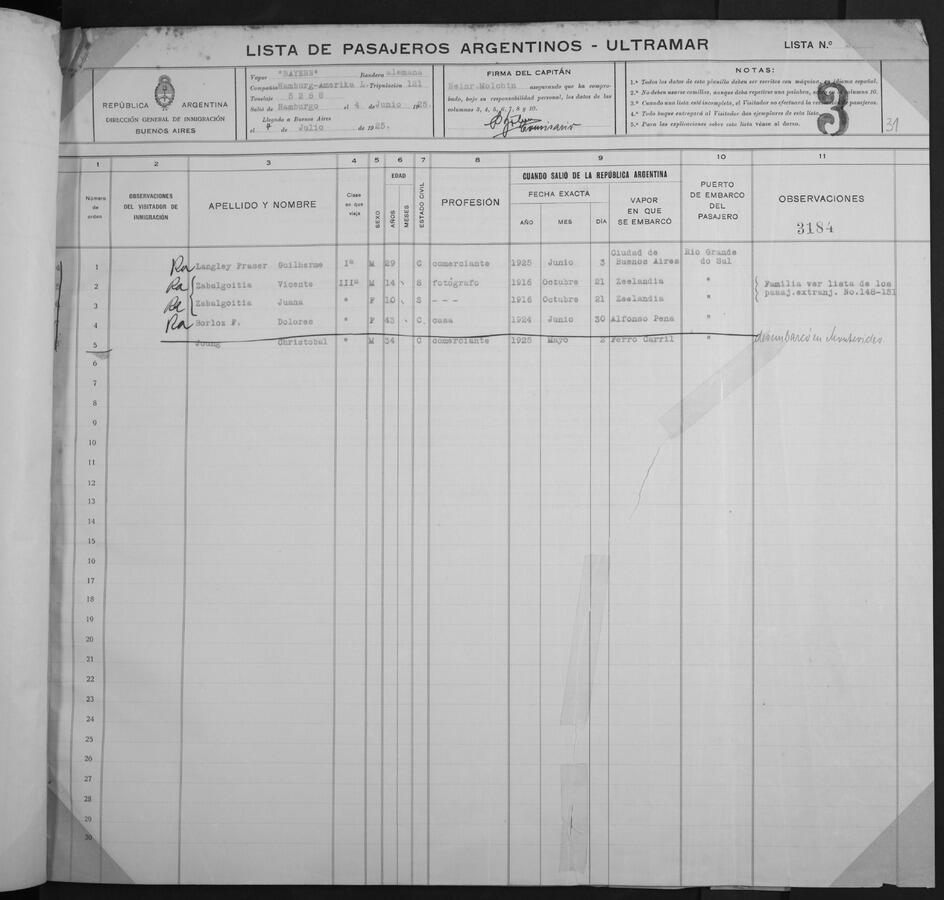 LISTA DE PASAJEROS ARGENTINOS - ULTRAMAR
LISTA N.º
REPÚBLICA ARGENTINA
DIRECCIÓN GENERAL DE INMIGRACIÓN
BUENOS AIRES
Vapor "BAYERN" Bandera alemana
Compañía Hamburg-Amerika L. Tripulación 121
Tonelaje
Salió de Hamburgo el 4 de junio 1925.
Llegado a Buenos Aires
el 4 de Julio de 1925.
FIRMA DEL CAPITÁN
Heinr. asegurando que ha compro-
bado, bajo su responsabilidad personal, los datos de las
columnas 3, 4, 5, 6, 7, 8 y 10.
Comisario
NOTAS:
1.ª Todos los datos de esta planilla deben ser escritos con máquina, en idioma español.
2.ª No deben usarse comillas, aunque deba repetirse una palabra, columnas 10.
3.ª Cuando una lista esté incompleta, el Visitador no efectuará la de pasajeros.
4.ª Todo buque entregará al Visitador dos ejemplares de esta lista.
5.ª Para las explicaciones sobre esta lista véase al dorso.
3
31
1 2 3 4 5 6 7 8 9 10 11
Número de orden
OBSERVACIONES DEL VISITADOR DE INMIGRACIÓN
APELLIDO Y NOMBRE
Clase en que viaja
SEXO
EDAD
AÑOS
MESES
ESTADO CIVIL
PROFESIÓN
CUANDO SALIÓ DE LA REPÚBLICA ARGENTINA
FECHA EXACTA
AÑO MES DÍA
VAPOR EN QUE SE EMBARCÓ
PUERTO DE EMBARCO DEL PASAJERO
OBSERVACIONES
3184
1 Ra Langley Fraser Guilherme Iª M 29 C comerciante 1925 Junio 3 Ciudad de Buenos Aires Rio Grande do Sul
2 Ra Zabalgoitia Vicente IIIª M 14 S fotógrafo 1916 Octubre 21 Zeelandia " Familia ver lista de los
3 Ra Zabalgoitia Juana " F 10 S --- 1916 Octubre 21 Zeelandia " pasaj.extranj. No.148-151
4 Ra Borloz F. Dolores " F 43 C casa 1924 Junio 30 Alfonso Pena "
5 Joung Christobal " M 34 C comerciante 1925 Mayo 2 Ferro Carril " desembarcó en Montevideo
6
7
8
9
10
11
12
13
14
15
10
17
18
19
20
21
22
23
24
25
26
27
28
29
30